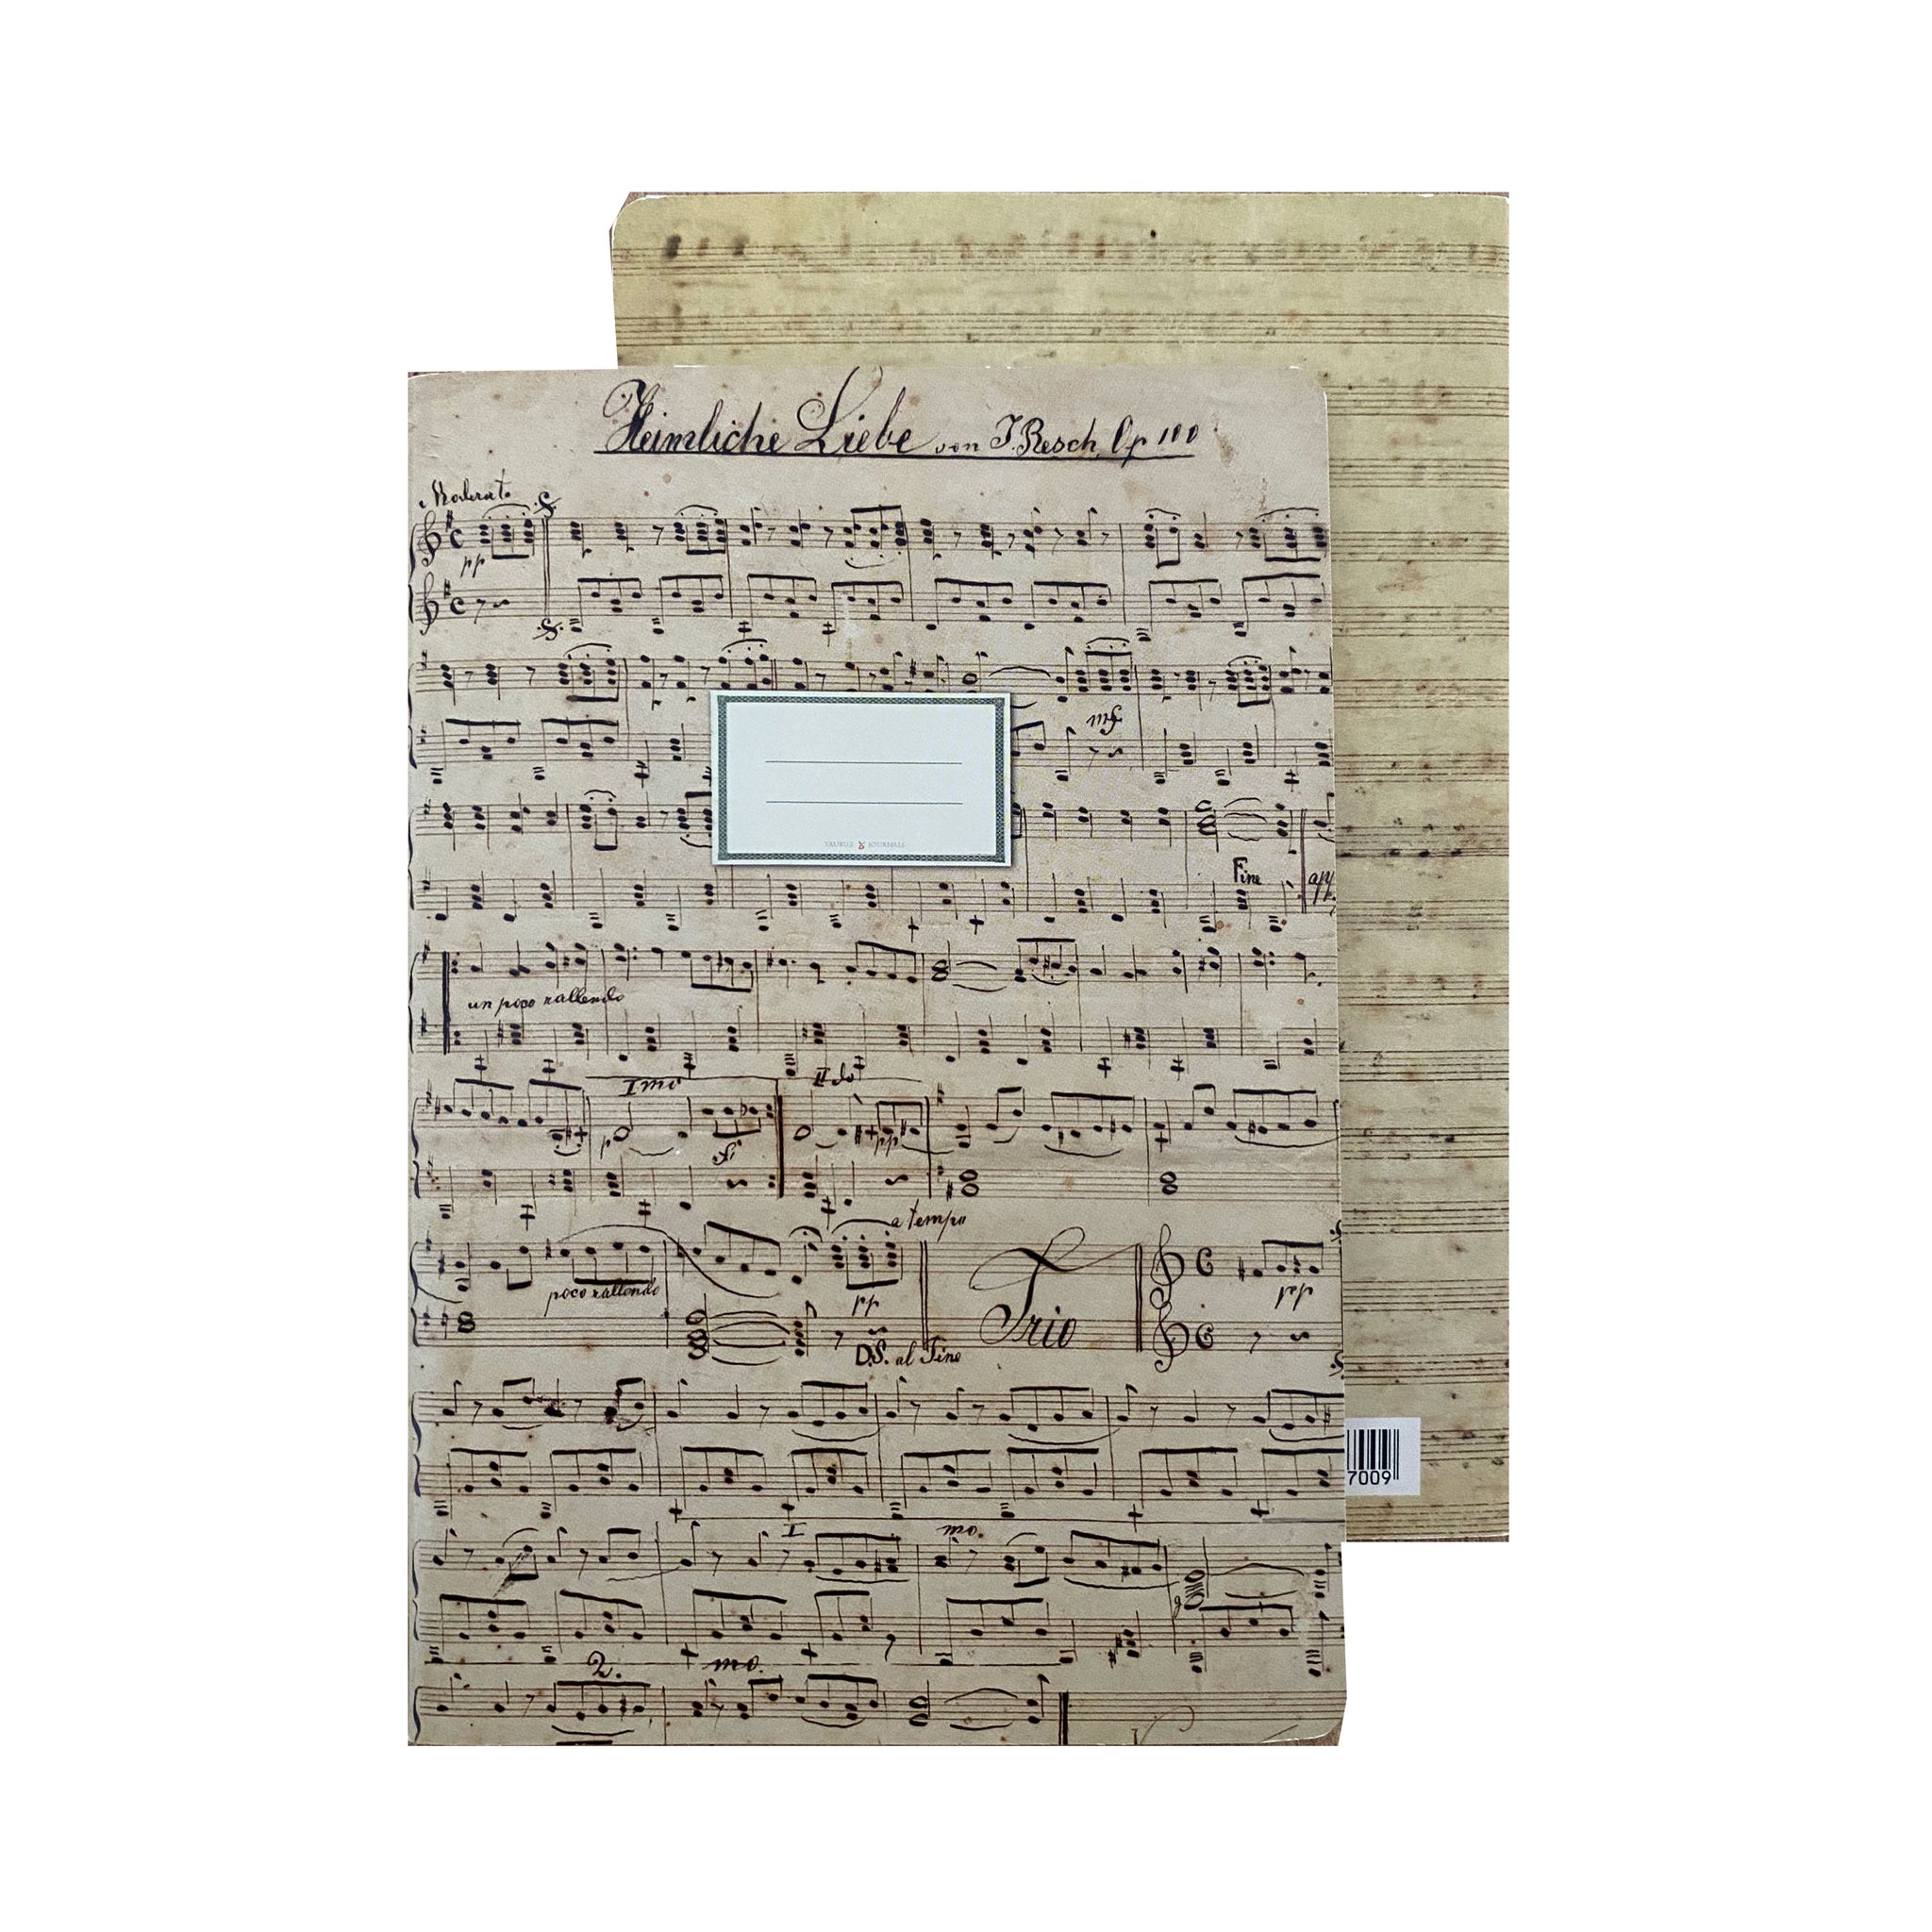 Heimliche Liebe von J. Resch, Op 100
Moderato
pp
mf
TAURUS JOURNALS
Fine
app.
un poco rallendo
Imo
IIdo
p
pp
a tempo
poco rallendo
pp
Trio
pp
D.S. al Fine
7009
I mo.
2. mo.